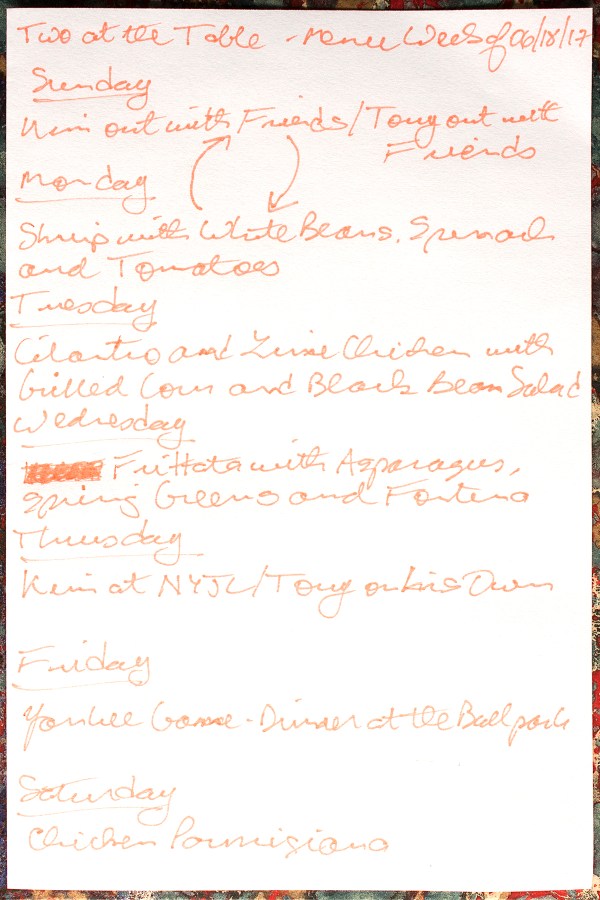 Two at the Table - Menu Week of 06/18/17
Sunday
Kim out with Friends/Tony out with
Friends
Monday
Shrimp with White Beans, Spinach
and Tomatoes
Tuesday
Cilantro and Lime Chicken with
Grilled Corn and Black Bean Salad
Wednesday
Frittata with Asparagus,
Spring Greens and Fontina
Thursday
Kim at NYJL/Tony on his Own
Friday
Yankee Game - Dinner at the Ball park
Saturday
Chicken Parmigiana